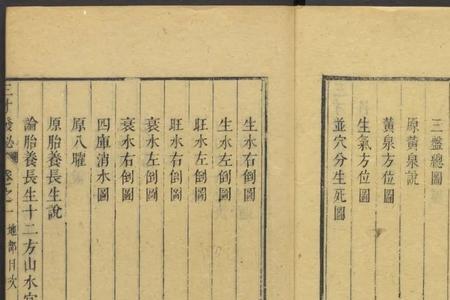 三盤總圖
原黃泉說
黃泉方位圖
生氣方位圖
並穴分生死圖
生水右倒圖
生水左倒圖
旺水左倒圖
旺水右倒圖
衰水左倒圖
衰水右倒圖
四庫消水圖
原八曜
原胎養長生說
論胎養長生十二方山水
三才發秘 卷之一 地部目次